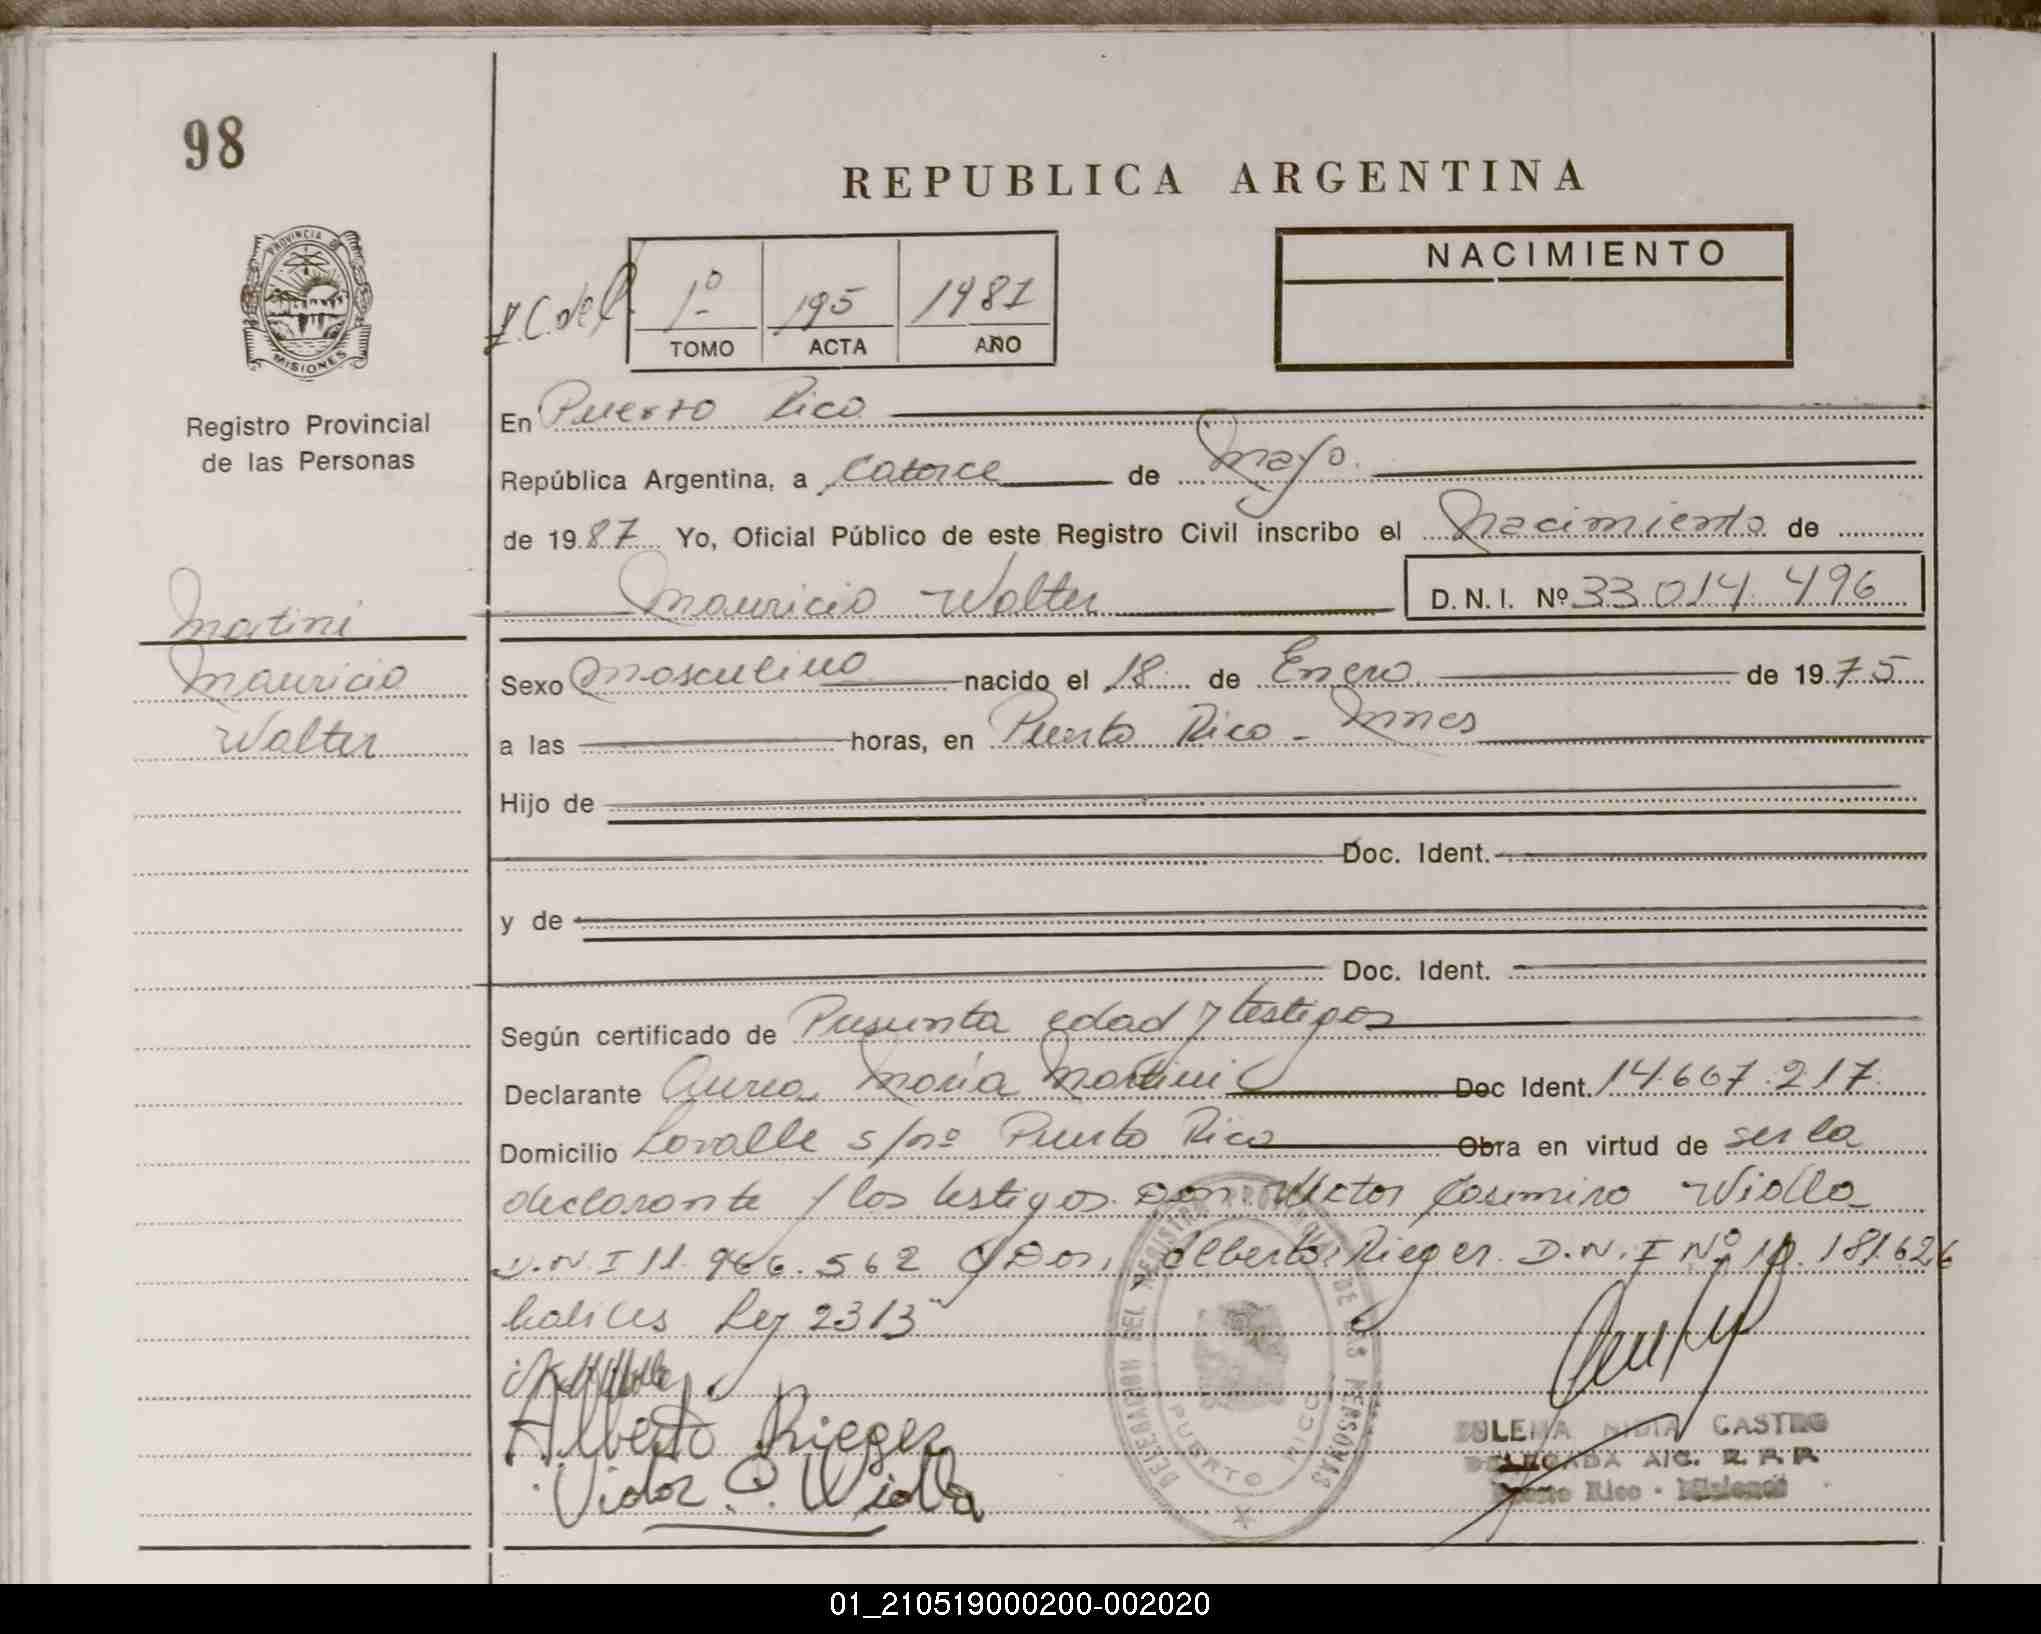 98
REPUBLICA ARGENTINA
PROVINCIA D
MISIONES
NACIMIENTO
1º 195 1987
TOMO ACTA AÑO
Registro Provincial
de las Personas
En Puerto Rico
República Argentina, a catorce de Mayo
de 1987 Yo, Oficial Público de este Registro Civil inscribo el Nacimiento de
Mauricio Walter D.N.I. Nº 33.014.496
Matini
Mauricio
Walter
Sexo Masculino nacido el 18 de Enero de 1975
a las horas, en Puerto Rico - Mnes
Hijo de
Doc. Ident.
y de
Doc. Ident.
Según certificado de Presunta edad y testigos
Declarante Aurea María Martini Doc Ident. 14.607.217
Domicilio Lavalle s/nº Puerto Rico Obra en virtud de ser la
declarante / los testigos Don Victor Casimiro Wiolla
D.N.I 11.966.562 y Don Alberto Rieger D.N.I Nº 10.181.626
Ley 23/3
Alberto Rieger
Victor C. Wiolla
DELEGACION DEL REGISTRO PROVINCIAL DE LAS PERSONAS
PUERTO RICO
ZULEMA NIDIA CASTRO
DELEGADA A/C. R. P. P.
Puerto Rico - Misiones
01_210519000200-002020